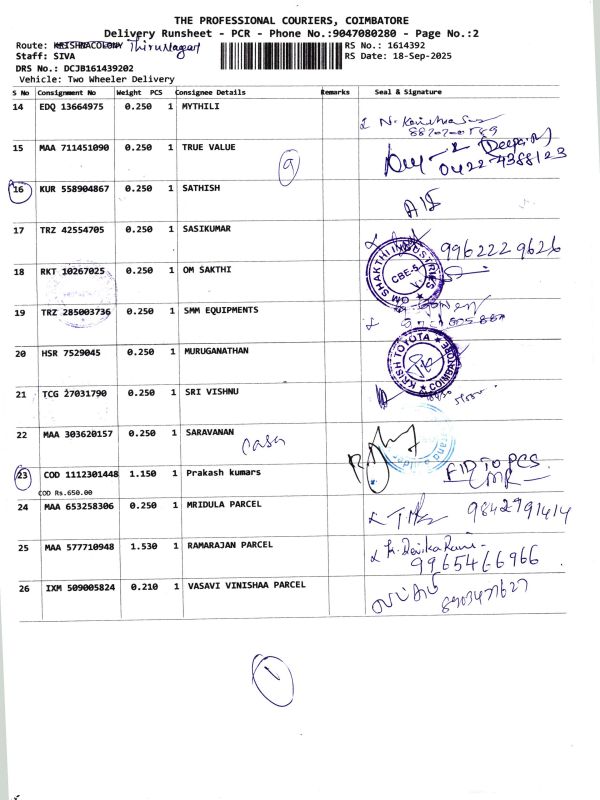 THE PROFESSIONAL COURIERS, COIMBATORE
Delivery Runsheet - PCR - Phone No.:9047080280 - Page No.:2
Route: KRISHNACOLONY ThiruNagar RS No.: 1614392
Staff: SIVA RS Date: 18-Sep-2025
DRS No.: DCJB161439202
Vehicle: Two Wheeler Delivery
S No Consignment No Weight PCS Consignee Details Remarks Seal & Signature
14 EDQ 13664975 0.250 1 MYTHILI
15 MAA 711451090 0.250 1 TRUE VALUE
0422-4388123
9
16 KUR 558904867 0.250 1 SATHISH
17 TRZ 42554705 0.250 1 SASIKUMAR
9962229626
18 RKT 10267025 0.250 1 OM SAKTHI
OM SHAKTHI INDUSTRIES CBE-5
19 TRZ 285003736 0.250 1 SMM EQUIPMENTS
20 HSR 7529045 0.250 1 MURUGANATHAN
KRISH TOYOTA COIMBATORE
21 TCG 27031790 0.250 1 SRI VISHNU
22 MAA 303620157 0.250 1 SARAVANAN
Cash
23 COD 1112301448 1.150 1 Prakash kumars
COD Rs.650.00
24 MAA 653258306 0.250 1 MRIDULA PARCEL 9842791414
25 MAA 577710948 1.530 1 RAMARAJAN PARCEL K. Devika Rani
9965466966
26 IXM 509005824 0.210 1 VASAVI VINISHAA PARCEL 8903477627
1